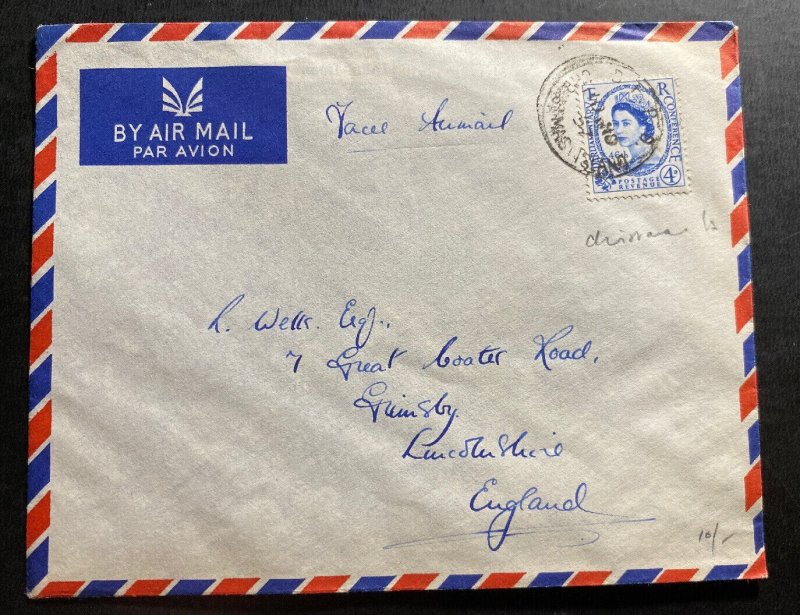 BY AIR MAIL
PAR AVION
Airmail
E R
CONFERENCE
POSTAGE
REVENUE
4D
CHRISTMAS ISLAND
L. Wells. Esq.,
7 Great Coates Road,
Grimsby.
Lincolnshire
England
10/-